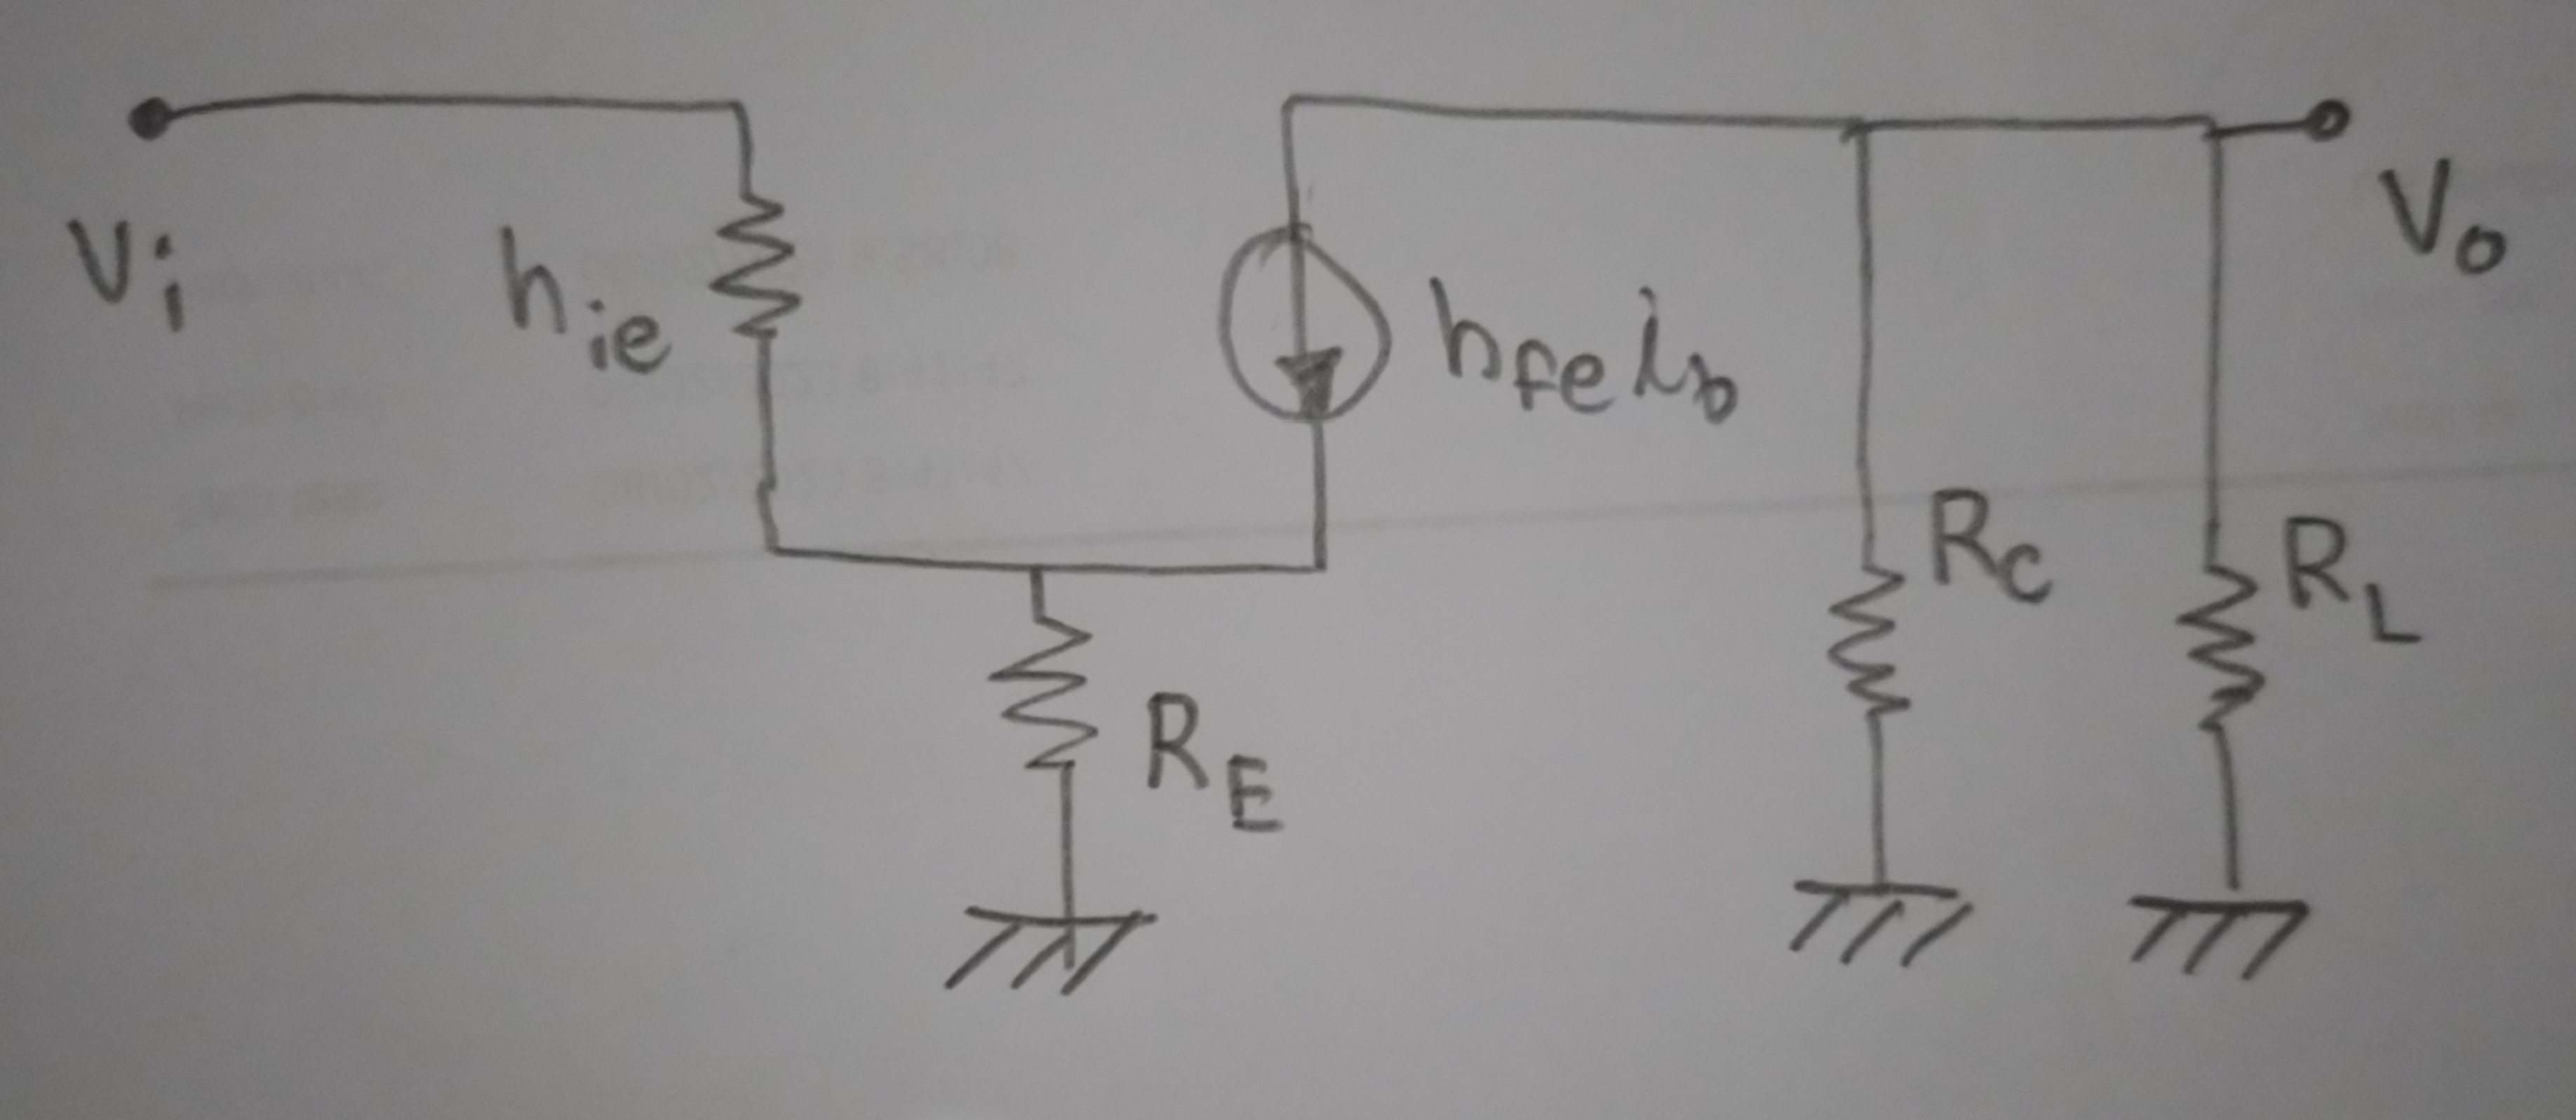 Vi
hie
hfe ib
Vo
RC
RL
RE